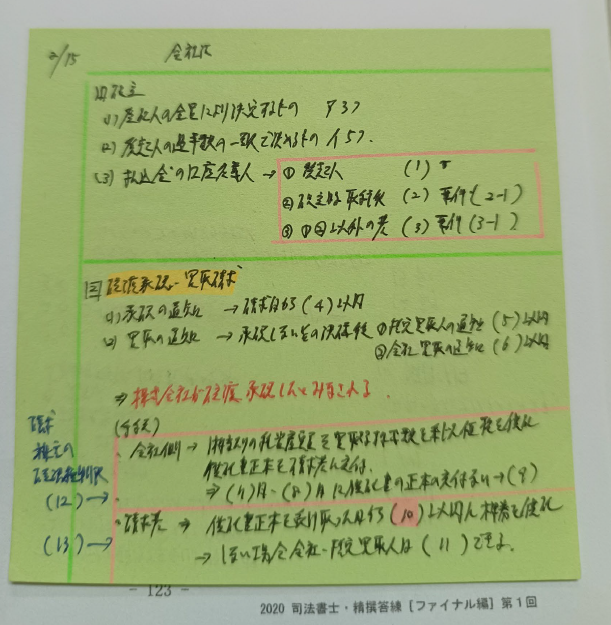 2/15 会社法
[1]設立
(1)発起人の全員により決定するもの 何か3つ
(2)発起人の過半数の一致で決めるもの 5つ
(3)払込金の口座名義人 → ① 発起人 (1)
②設立時取締役 (2) 要件(2-1)
③①②以外の者 (3) 要件(3-1)
[2]譲渡承認・買取請求
(1)承認の通知 → 請求日から(4)以内
(2)買取の通知 → 承認しない旨の決議後 ①指定買取人の通知(5)以内
②会社買取の通知(6)以内
⇒ 株式会社が譲渡承認したとみなされる。
(手続)
・会社側 → 1株当たりの純資産額を買取る株式数を乗じた額を供託
供託書正本を請求者に交付。
⇒(7)日・(8)日に供託書の正本の交付ない→(9)
・請求者 ⇒ 供託書正本を受け取った日から(10)以内に株券を供託
→ しない場合会社・指定買取人は(11)できる。
請求
株主の
(12)→
(13)→
- 123 -
2020 司法書士・精撰答練[ファイナル編]第1回